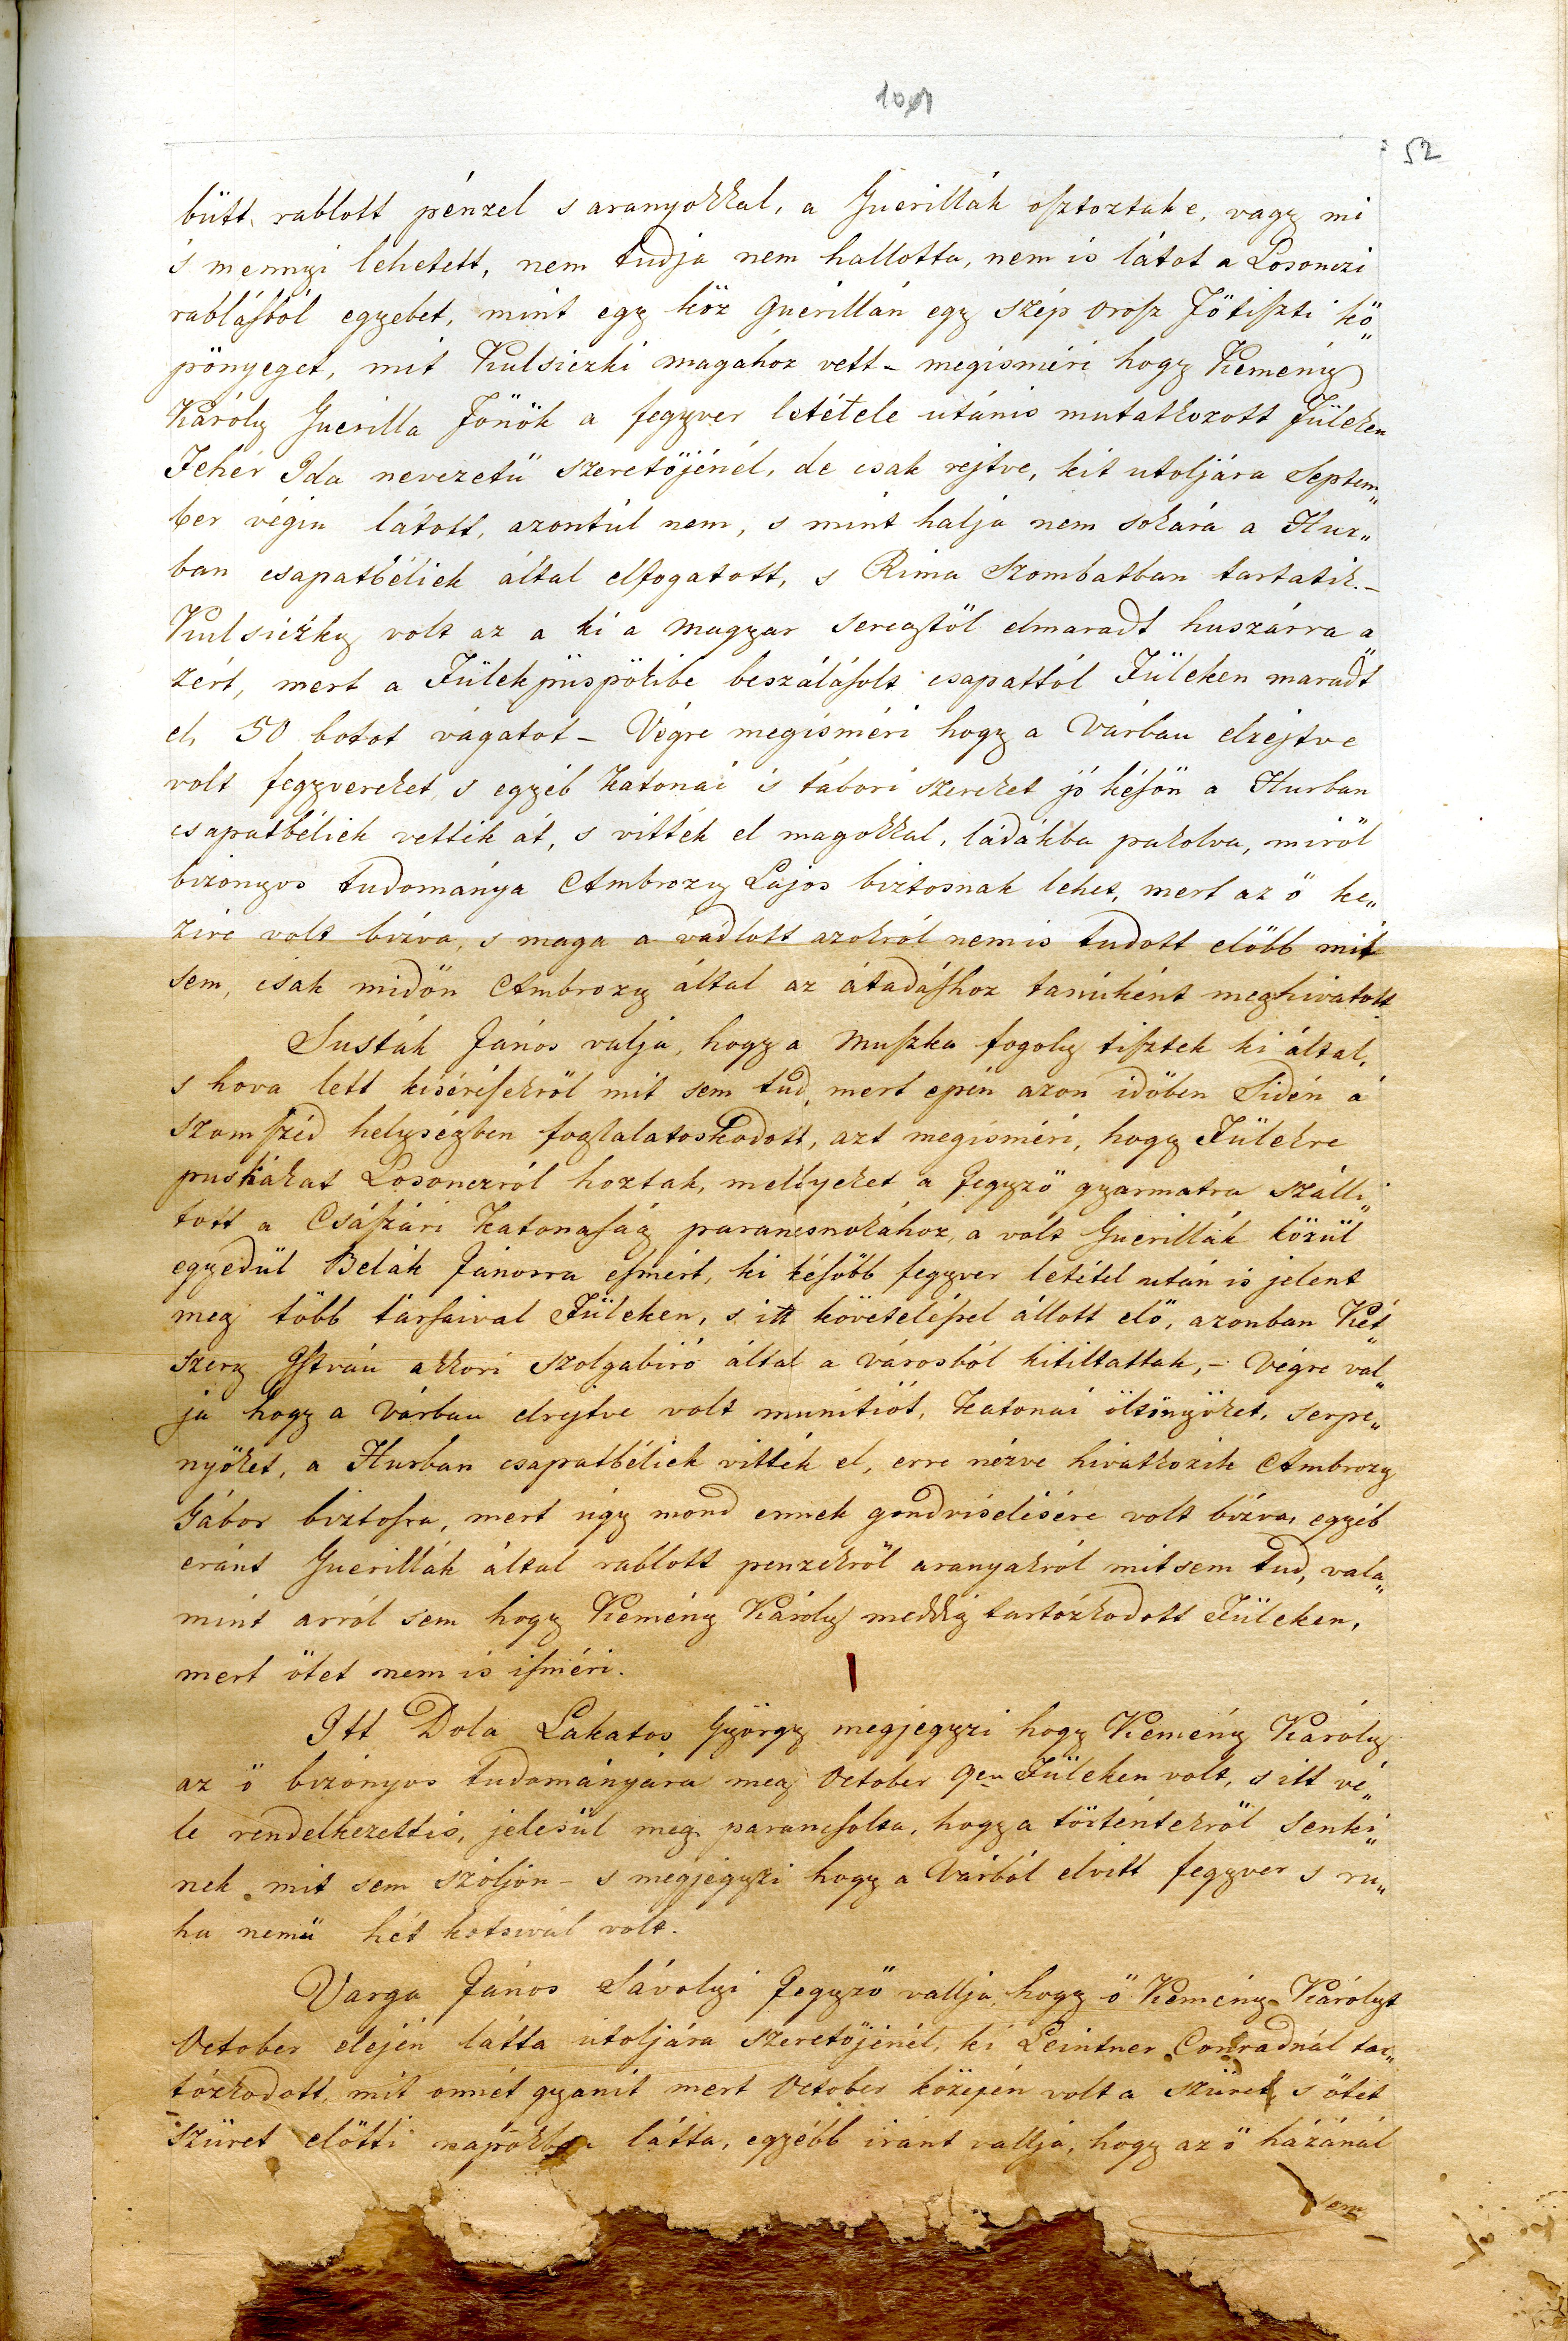 52
bütt rablott pénzel s aranyokkal, a Guerillák osztoztak e, vagy mi
s mennyi lehetett, nem tudja nem hallotta, nem is látot a Losonczi
rablásból egyebet, mint egy köz guerillán egy szép orosz Fötiszti kö„
pönyeget, mit Kulsiczki magához vett – megisméri hogy Kemény
Károly Guerilla Fönök a fegyver letétele utánis mutatkozott Füleken
Fehér Ida nevezetü szeretöjénél, de csak rejtve, kit utoljára Septem„
ber végin látott, azontúl nem, s mint halja nem sokára a Hur„
ban csapatbéliek által elfogatott, s Rima Szombatban tartatik. –
Kulsiczky volt az a ki a magyar seregtöl elmaradt huszárra a
zért, mert a Fülekpüspökibe beszálásolt csapattól Füleken maradt
el, 50 botot vágatot – Végre megisméri hogy a Várban elrejtve
volt fegyvereket, s egyéb katonai s tábori szereket jó késön a Hurban
csapatbéliek vették át, s vitték el magokkal, ládákba pakolva, miröl
bizonyos tudománya Ambrozy Lajos biztosnak lehet, mert az ö ke„
zire volt bizva, s maga a vádlott azokról nemis tudott elöbb mit
sem, csak midön Ambrozy által az átadáshoz tanúként meghivatott.
Susták János valja, hogy a muszka fogoly tisztek ki által,
s hova lett kisérésekröl mit sem tud, mert epén azon idöben Sidén a
szomszéd helységben foglalatoskodott, azt megisméri, hogy Fülekre
puskákat Losonczról hoztak, mellyeket a Jegyzö gyarmatra szálli„
tott a Császári katonaság parancsnokához, a volt Guerillák közül
egyedül Belák Jánosra esmért, ki késöbb fegyver letétel után is jelent
meg több társaival Füleken, s itt követeléssel állott elö, azonban Két
szery István akkori szolgabiró által a városból kitiltattak, – Végre val„
ja hogy a Várban elrejtve volt munitiót, katonai öltönyöket, serpe„
nyöket, a Hurban csapatbéliek vitték el, erre nézve hivatkozik Ambrozy
Gábor biztosra, mert úgy mond ennek gondviselésére volt bizva, egyéb
eránt Guerillák által rablott penzekröl aranyakról mitsem tud, vala„
mint arról sem hogy Kemény Károly meddig tartózkodott Füleken,
mert ötet nem is isméri.
Itt Dola Lakatos György megjegyzi hogy Kemény Károly
az ö bizonyos tudományára meg October 9en Füleken volt, s itt vé„
le rendelkezettis, jelesül meg parancsolta, hogy a történtekröl senki„
nek mit sem szóljon – s megjegyzi hogy a Várból elvitt fegyver s ru„
ha nemü hét kotsivál volt.
Varga János Sávolyi Jegyzö vallja, hogy ö Kemény Károlyt
October elején látta utoljára szeretöjénél, ki Leintner Conradnál tar„
tózkodott, mit onnét gyanit mert October közepén volt a szüret, s ötet
szüret elötti napokban látta, egyébb iránt vallja, hogy az ö házánál
sem